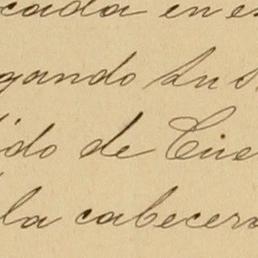 cada en es
gando su s
ido de Cue
la cabecera